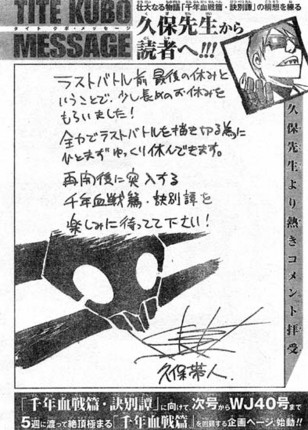 TITE KUBO
タイト クボ・メッセージ
MESSAGE
壮大なる物語「千年血戦篇・訣別譚」の構想を練る
久保先生から
読者へ!!!
久保先生より熱きコメント拝受
ラストバトル前 最後の休みと
いうことで、少し長めのお休みを
もらいました!
全力でラストバトルを描き切る為に
ひとまずゆっくり休んできます。
再開後に突入する
千年血戦篇・訣別譚を
楽しみに待ってて下さい!
久保帯人.
「千年血戦篇・訣別譚」に向けて次号からWJ40号まで
5週に渡って絶頂極まる「千年血戦篇」を回顧する企画ページ、始動!!